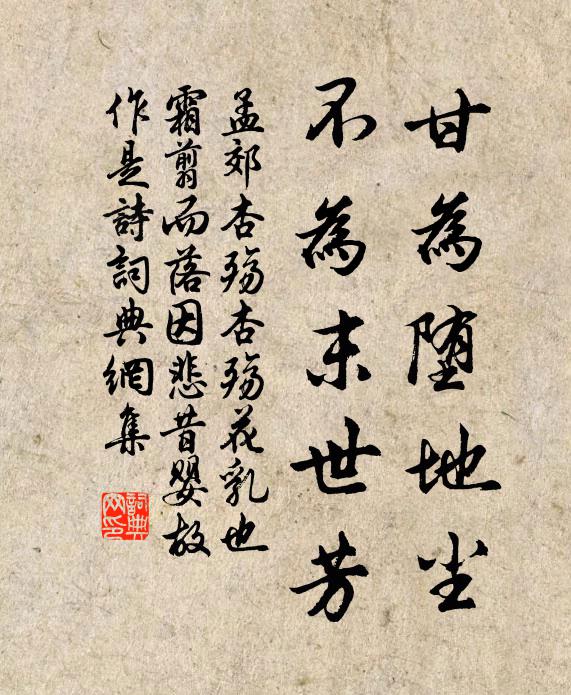 甘為堕地尘
不為末世芳
孟郊杏殇杏殇花乳也
霜翦而落因悲昔婴故
作是詩詞典網集
詞典网印